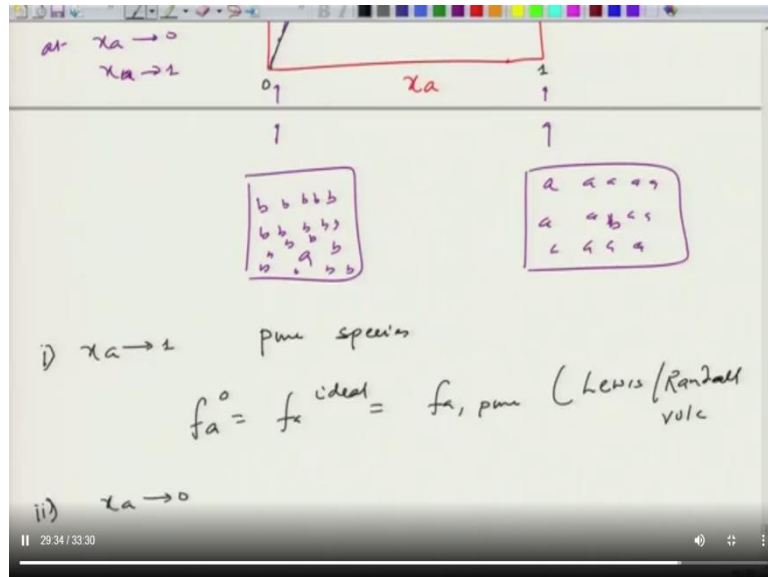 at xa → 0
xa → 1
0 1
xa
b b b b b
b b b b b
b b b
a
b b b
a a a a a
a a b a a
a a a a
i) xa → 1 pure species
fa° = fa ideal = fa, pure (Lewis/Randall
rule
ii) xa → 0
29:34 / 33:30